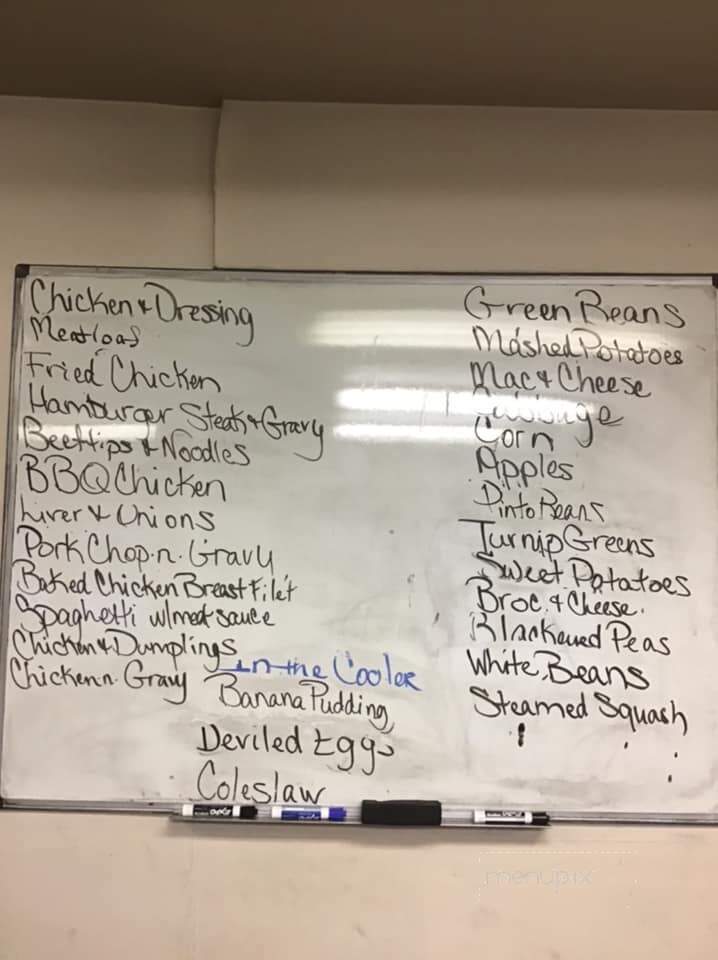 Chicken & Dressing
Meatloaf
Fried Chicken
Hamburger Steak & Gravy
Beeftips & Noodles
BBQ Chicken
Liver & Onions
Pork Chop. n. Gravy
Baked Chicken Breast Filet
Spaghetti w/meat sauce
Chicken & Dumplings
Chicken n. Gravy
In the Cooler
Banana Pudding
Deviled Eggs
Coleslaw
Green Beans
Mashed Potatoes
Mac & Cheese
Cabbage
Corn
Apples
Pinto Beans
Turnip Greens
Sweet Potatoes
Broc. & Cheese.
Blackeyed Peas
White Beans
Steamed Squash
EXPO
EXPO
menupix